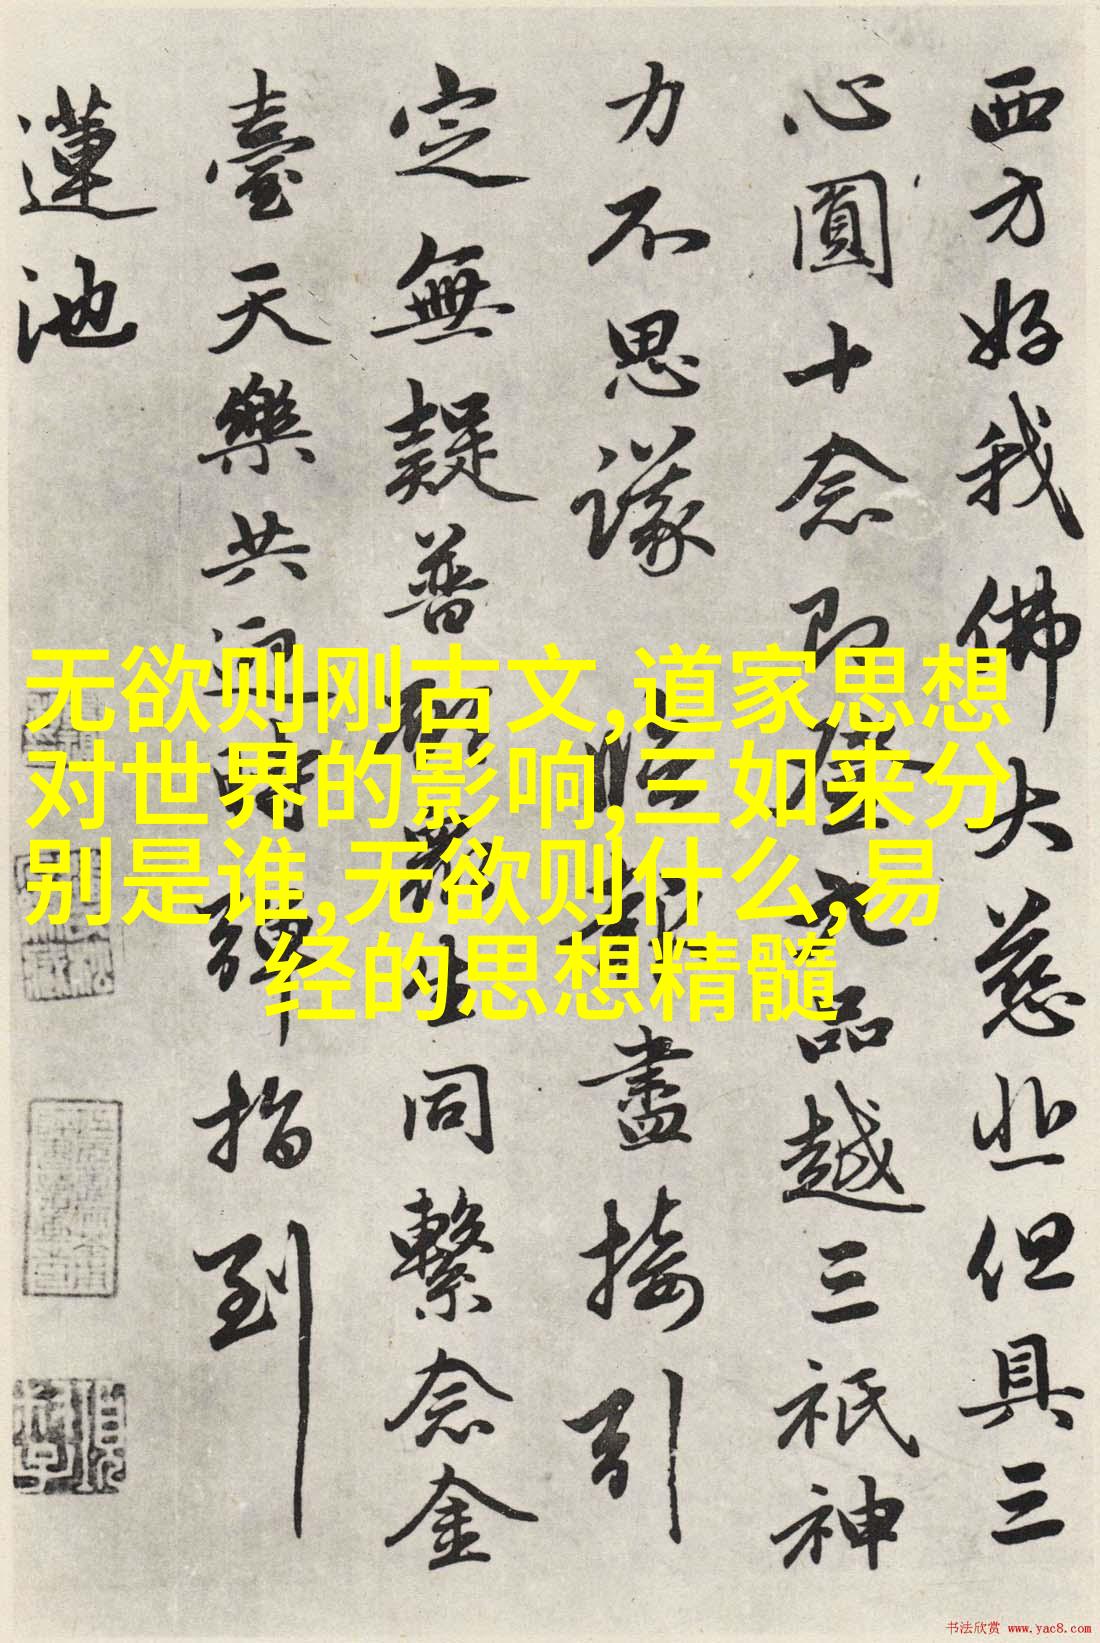 西方好我佛大慈悲但具三
心圓十念即登九品越三祇神
力不思議 臨都盡接引
定無疑普勸衆生同繫念金
臺天樂共迎時彈指到
蓮池
无欲则刚古文,道家思想
对世界的影响,三如来分
别是谁,无欲则什么,易
经的思想精髓
书法欣赏 www.yac8.com